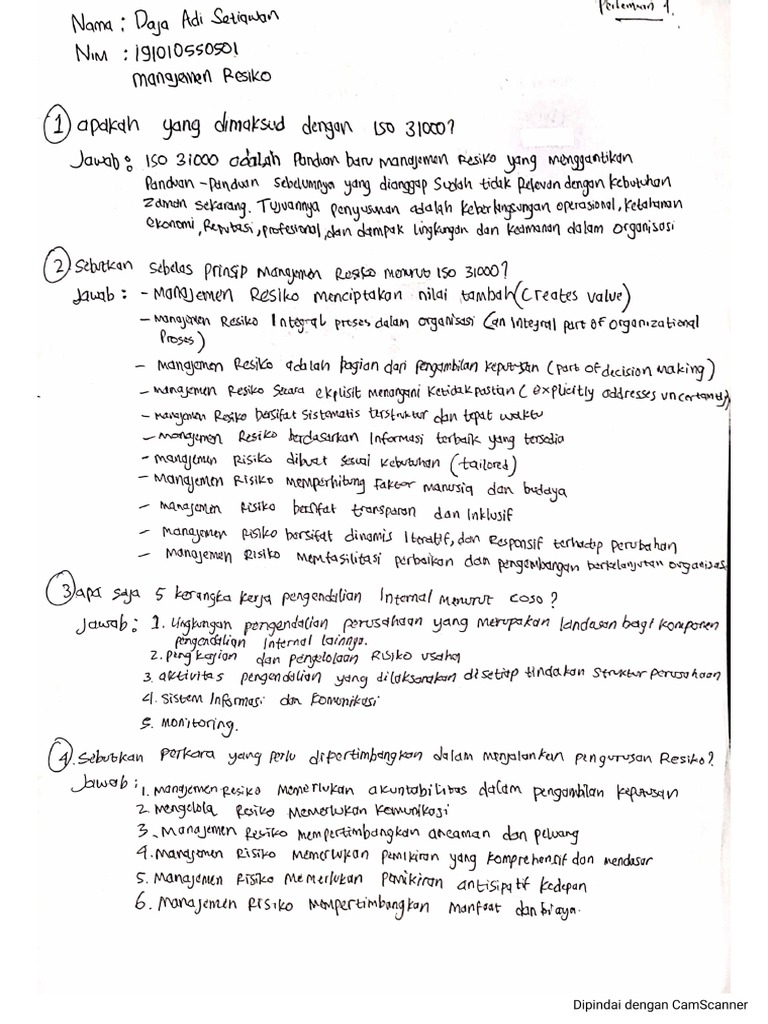 Pertemuan 1.
Nama : Daja Adi Setiawan
NIM : 191010550501
Manajemen Resiko
1) apakah yang dimaksud dengan ISO 31000?
Jawab : ISO 31000 adalah Panduan baru Manajemen Resiko yang menggantikan
Panduan - Panduan sebelumnya yang dianggap sudah tidak Relevan dengan kebutuhan
Zaman sekarang. Tujuannya penyusunan adalah keberlangsungan operasional, ketahanan
ekonomi, Reputasi, profesional, dan dampak lingkungan dan keamanan dalam organisasi
2) Sebutkan sebelas prinsip Manajemen Resiko menurut ISO 31000?
Jawab : - Manajemen Resiko menciptakan nilai tambah (Creates value)
- Manajemen Resiko Integral proses dalam organisasi (an Integral part of organizational
Proses)
- Manajemen Resiko adalah bagian dari pengambilan keputusan (part of decision making)
- Manajemen Resiko secara ekplisit menangani ketidakpastian (explicitly addresses uncertainty)
- Manajemen Resiko bersifat sistematis terstruktur dan tepat waktu
- Manajemen Resiko berdasarkan Informasi terbaik yang tersedia
- manajemen Risiko dibuat sesuai kebutuhan (tailored)
- Manajemen Risiko memperhitung faktor manusia dan budaya
- Manajemen Risiko bersifat transparan dan Inklusif
- Manajemen Risiko bersifat dinamis Iteratif, dan Responsif terhadap perubahan
- Manajemen Risiko memfasilitasi perbaikan dan pengembangan berkelanjutan organisasi
3) apa saja 5 kerangka kerja pengendalian Internal menurut COSO?
Jawab : 1. Lingkungan pengendalian perusahaan yang merupakan landasan bagi komponen
pengendalian Internal lainnya.
2. pengkajian dan pengelolaan Risiko usaha
3. aktivitas pengendalian yang dilaksanakan disetiap tindakan struktur perusahaan
4. Sistem Informasi dan Komunikasi
5. Monitoring.
4. Sebutkan perkara yang perlu dipertimbangkan dalam menjalankan pengurusan Resiko?
Jawab : 1. Manajemen Resiko memerlukan akuntabilitas dalam pengambilan keputusan
2 Mengelola Resiko Memerlukan Komunikasi
3. Manajemen Resiko mempertimbangkan ancaman dan peluang
4. Manajemen Risiko memerlukan pemikiran yang komprehensif dan mendasar
5. Manajemen Risiko Memerlukan pemikiran antisipatif kedepan
6. Manajemen Risiko mempertimbangkan manfaat dan biaya.
Dipindai dengan CamScanner